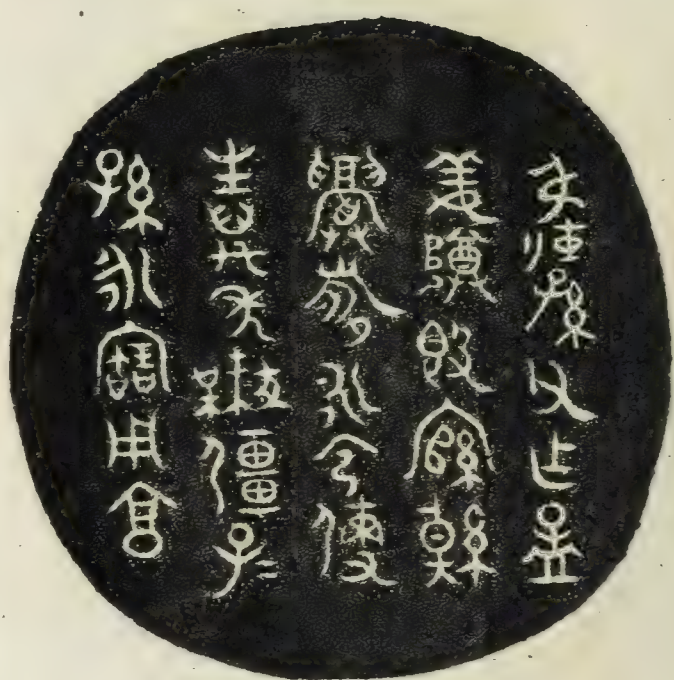 叔孫父乍孟
姜𣪘綰綽
眉壽永令
生萬年無疆子=
孫永寶用享